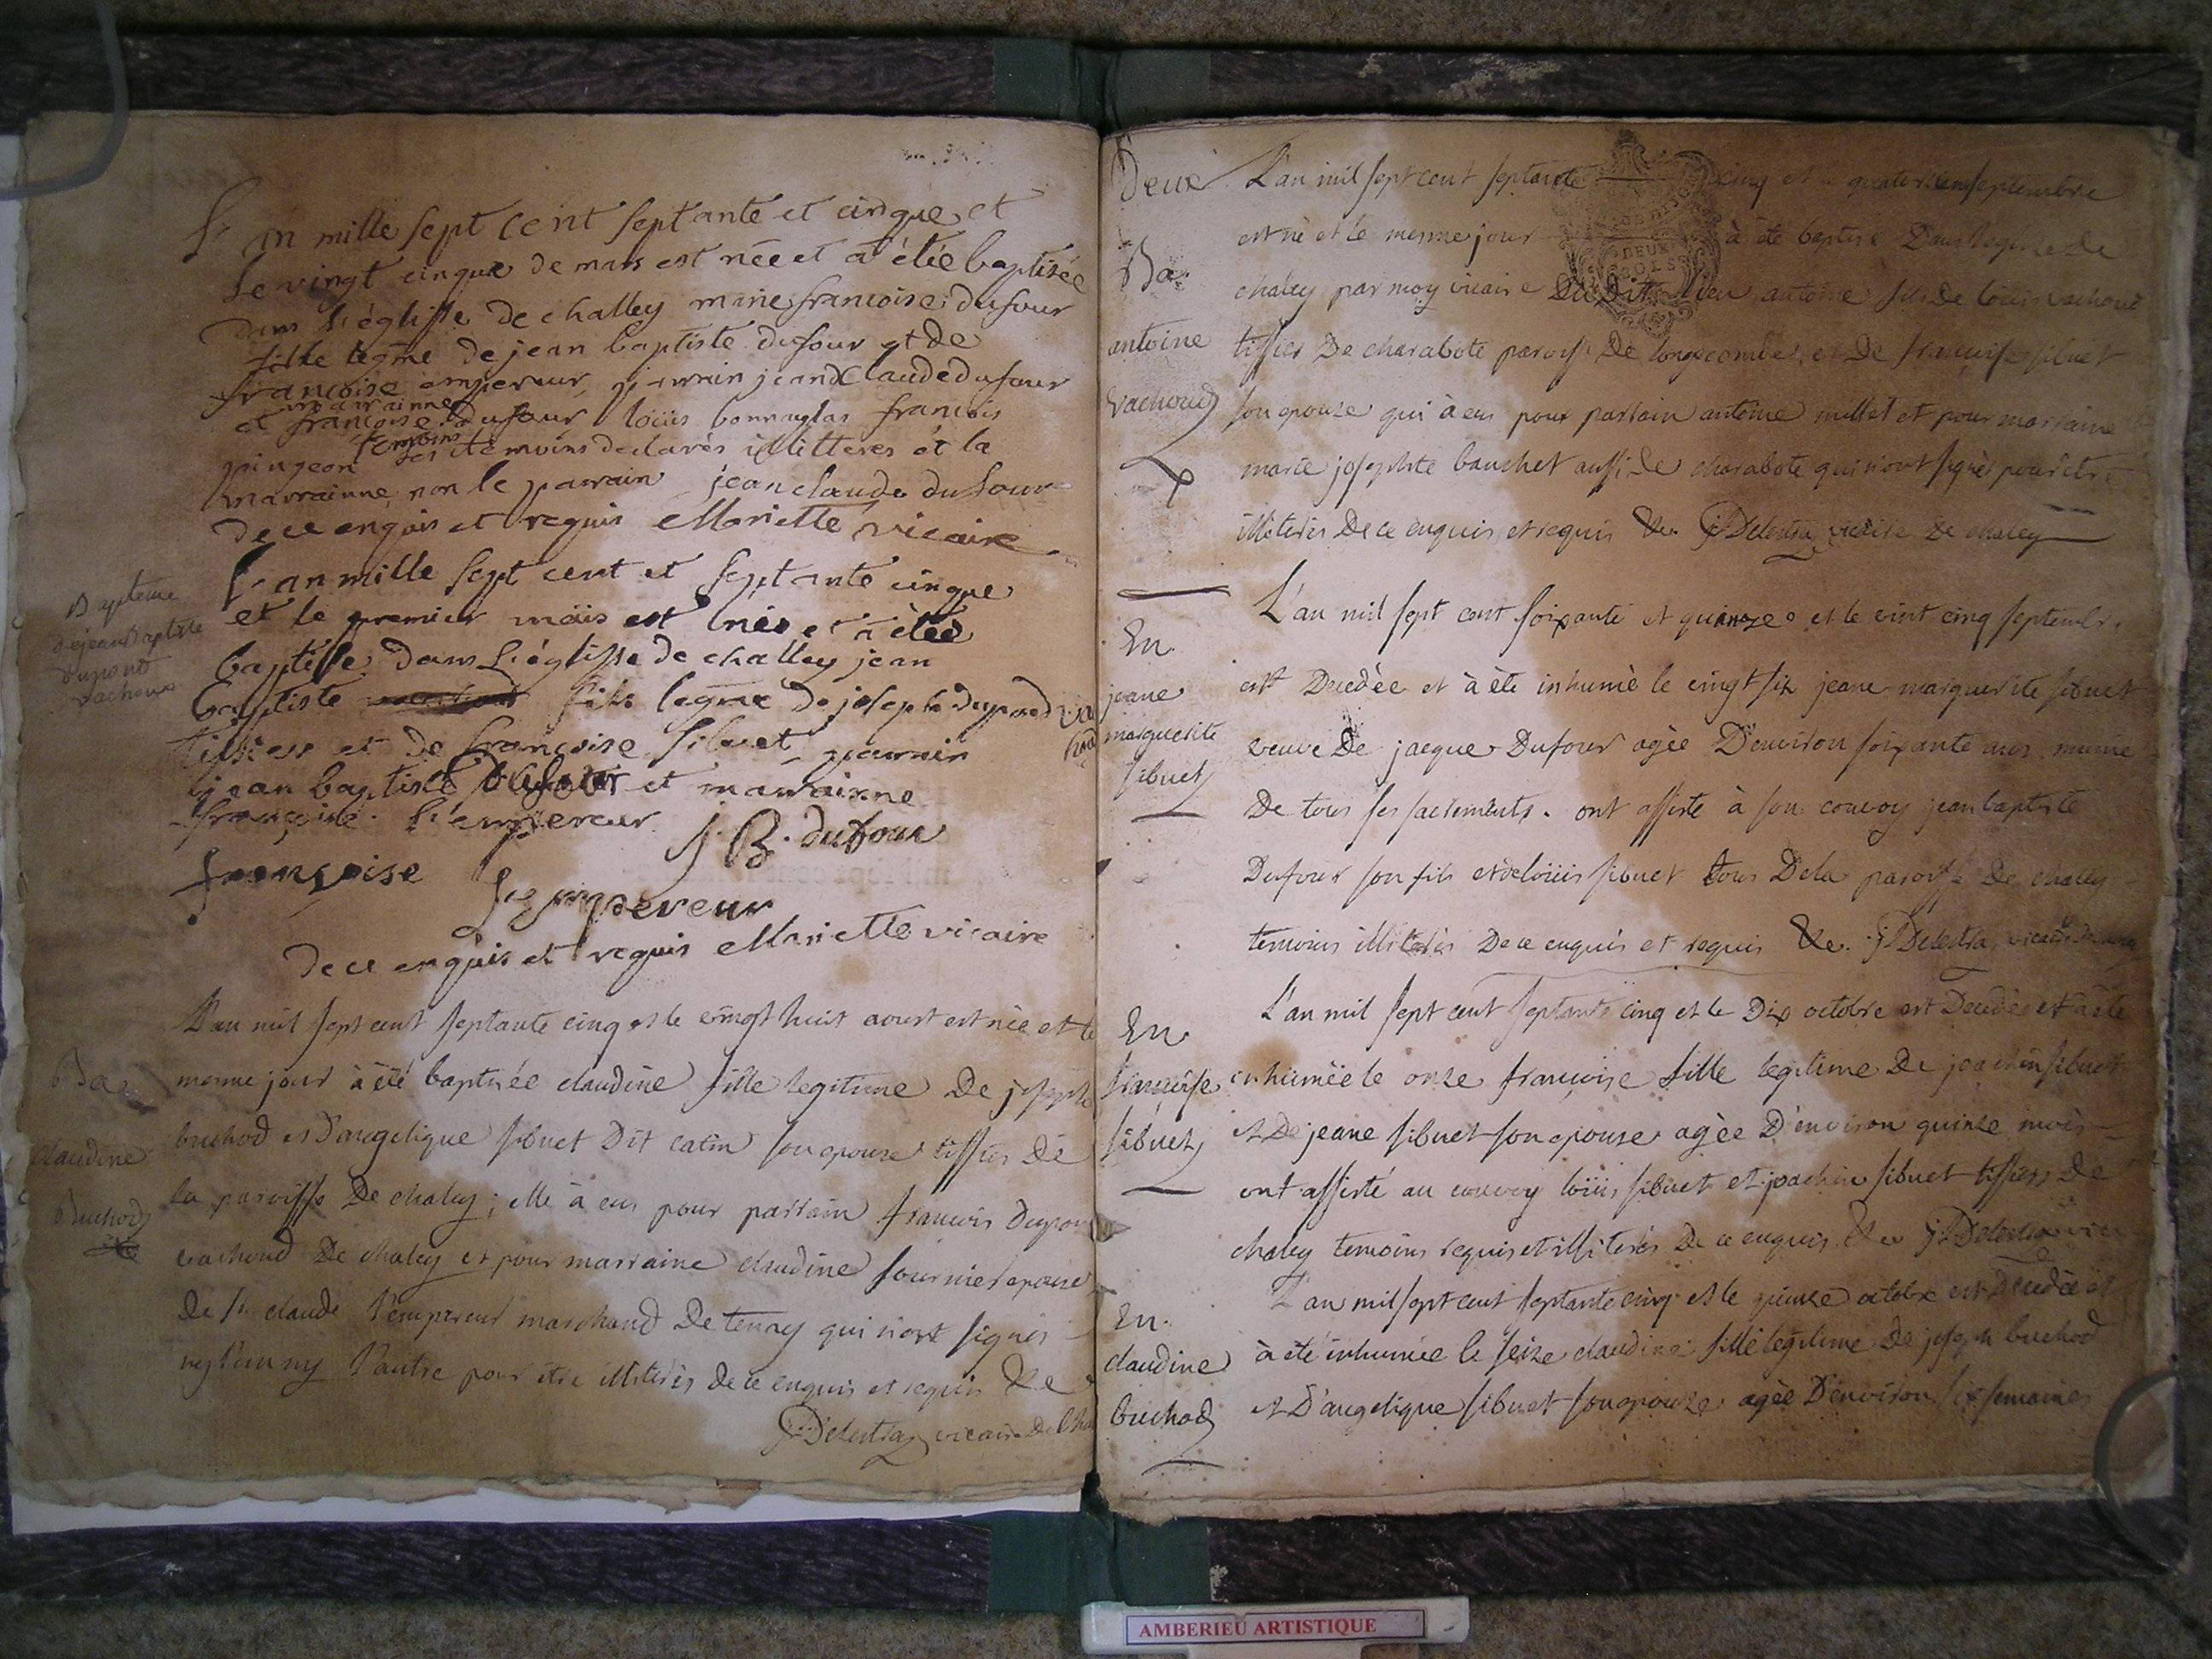 L'an mille sept cent septante et cinque et
le vingt cinque de mars est née et a étée baptisée
dans l'églisse de challey marie francoise dufour
fille legme de jean baptiste dufour et de
francoise empereur, parrain jean Claude dufour
marrainne
et francoise dufour, loüis bonnaglas francois
temoins
pingeon les temoins declarés illitteres et la
marrainne non le parrain jean claude dufour
de ce enquis et requis Mariette vicaire
L'an mille sept cent et septante cinque
et le premier mais est nés et a étée
baptisse dans l'églisse de challey jean
baptiste fils legme de joseph dupond va
choud
tissier et de francoise sibuet parrain
jean baptiste dufour et marrainne
françoise l'empereur
J B dufour
françoise
Lempereur
de ce enquis et requis Mariette vicaire
Bapteme
de jean Baptiste
dupond
vachoux
L'an mil sept cent septante cinq et le vingt huit aoust est née et le
mesme jour à été baptisée claudine fille legitime De joseph
buchod et D'angelique sibuet Dit catin son epouse tissier De
la paroisse De chaley; elle à eus pour parrain francois Dupon
vachoud De chaley et pour marraine claudine fournier epouse
De Sr claude l'empereur marchand De tenay qui n'ont signés
ny l'un ny l'autre pour être illiterés de ce enquis et requis &c
Delestra vicaire De Cha
Ba
claudine
Buchod
Deux
L'an mil sept cent septante cinq et quatorze septembre
est né et le mesme jour à été baptisé Dans l'eglise de
chaley par moy vicaire Du Dit lieu antoine fils de loüis vachoud
tissier De charabote paroisse De longecombe, et De francoise sibuet
son epouze qui à eus pour parrain antoine millet et pour marraine
marie josephte bauchet aussi de charabote qui n'ont signés pour etre
illiterés De ce enquis et requis &c Delestra vicaire De chaley
DEUX
SOLS
Ba
antoine
vachoud
L'an mil sept cent soixante et quinze et le vint cinq septembre
est Decedée et à été inhumé le vingt six jeane marguerite sibuet
veuve De jacque Dufour agée D'environ soixante ans munie
De tous ses sacrements. ont assisté à son convoy jean baptiste
Dufour son fils et loüis sibuet tous De la paroisse De chaley
temoins illiterés De ce enquis et requis &c. Delestra vicaire
En
jeane
marguerite
sibuet
L'an mil sept cent septante cinq et le Dix octobre est Decedée et à été
inhumée le onze françoise fille legitime De joachin sibuet
et De jeane sibuet son epouse agée D'environ quinze mois
ont assisté au convoy loüis sibuet et joachin sibuet tissiers De
chaley temoins requis et illiterés De ce enquis &c Delestra vic
En
francoise
sibuet
L'an mil sept cent septante cinq et le quinze octobre est Decedée et
à été inhumée le seize claudine fille legitime De joseph buchod
et D'angelique sibuet son epouze agée D'environ six semaines
En.
claudine
buchod
AMBERIEU ARTISTIQUE